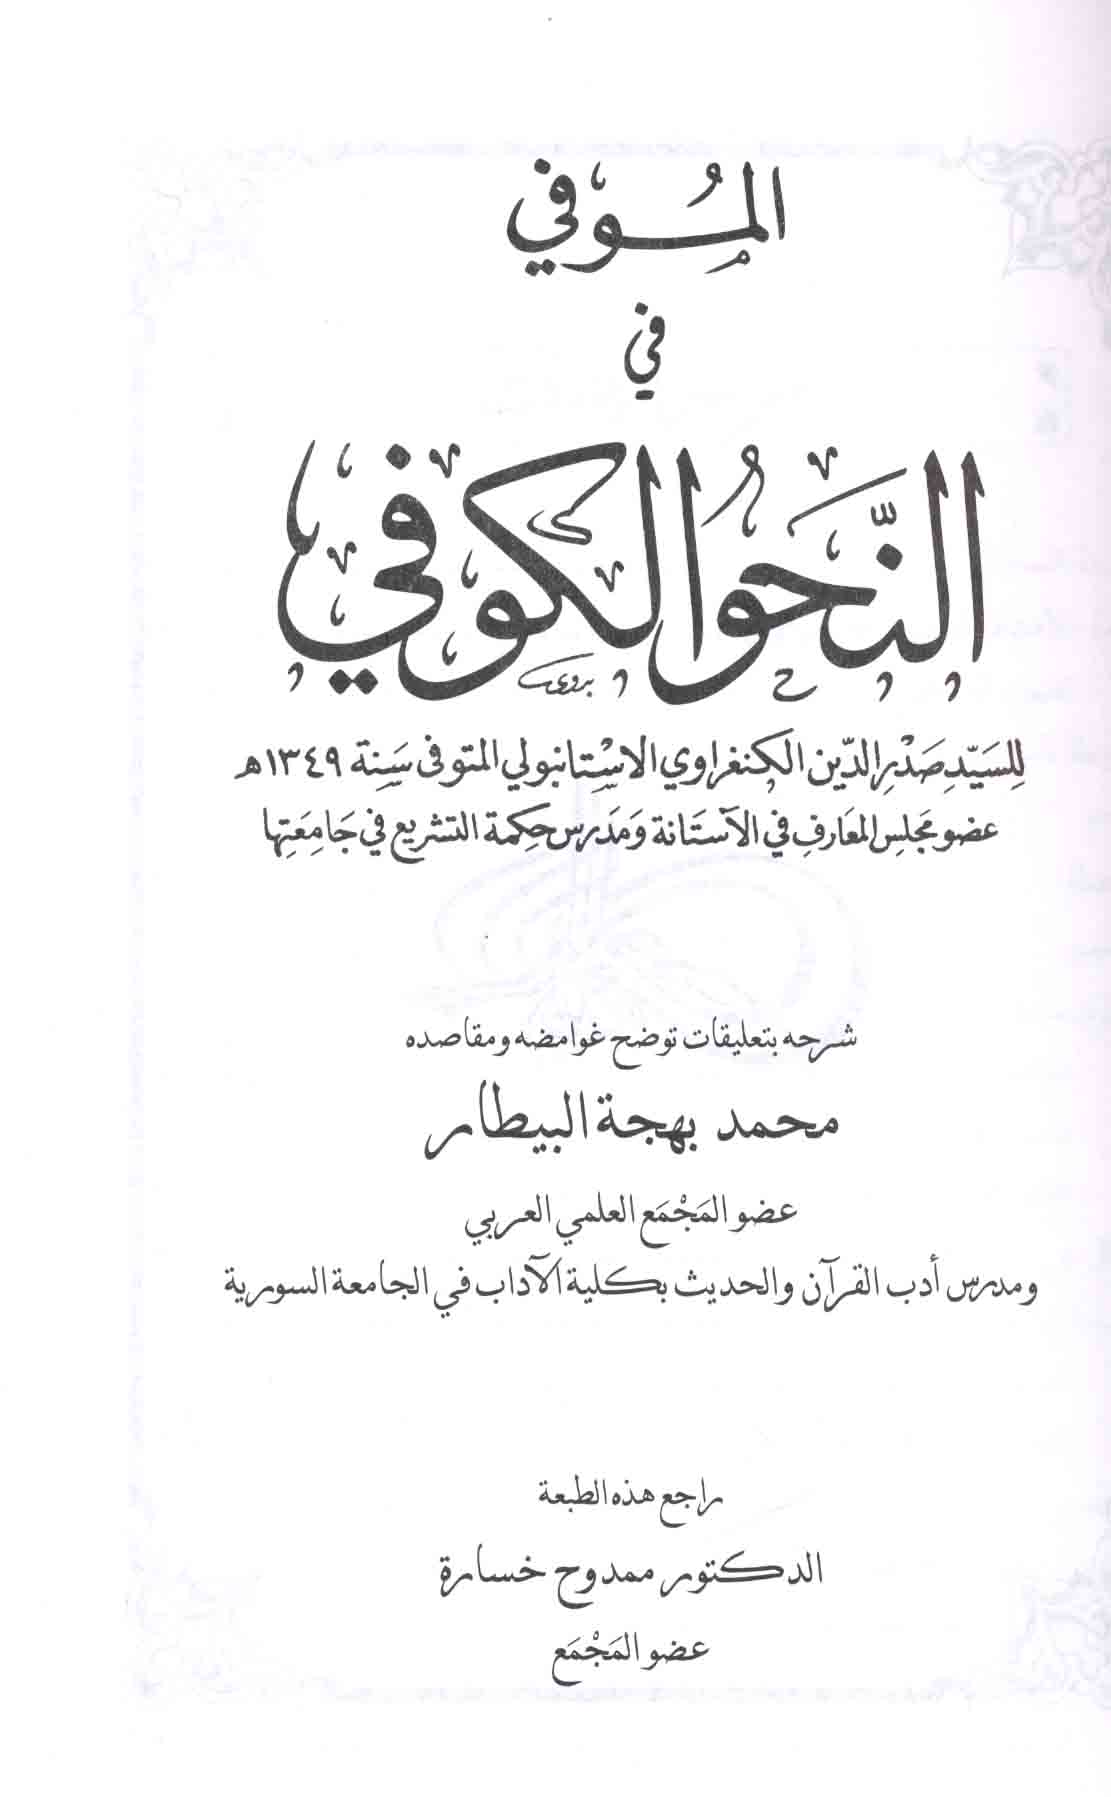 المُوفي
في
النَّحو الكوفي
للسَيّدِ صَدْرِ الدّين الكنغراوي الاسْتانبولي المتوفى سَنة ١٣٤٩ هـ
عضو مجَلسِ المعَارفِ في الآستَانة وَمَدَرسَ حكِمة التشريع في جَامِعَتِها
شرحه بتعليقات توضح غوامضه ومقاصده
محمد بهجة البيطار
عضو المَجْمَع العلمي العربي
ومدرس أدب القرآن والحديث بكلية الآداب في الجامعة السورية
راجع هذه الطبعة
الدكتور ممدوح خسارة
عضو المَجْمَع